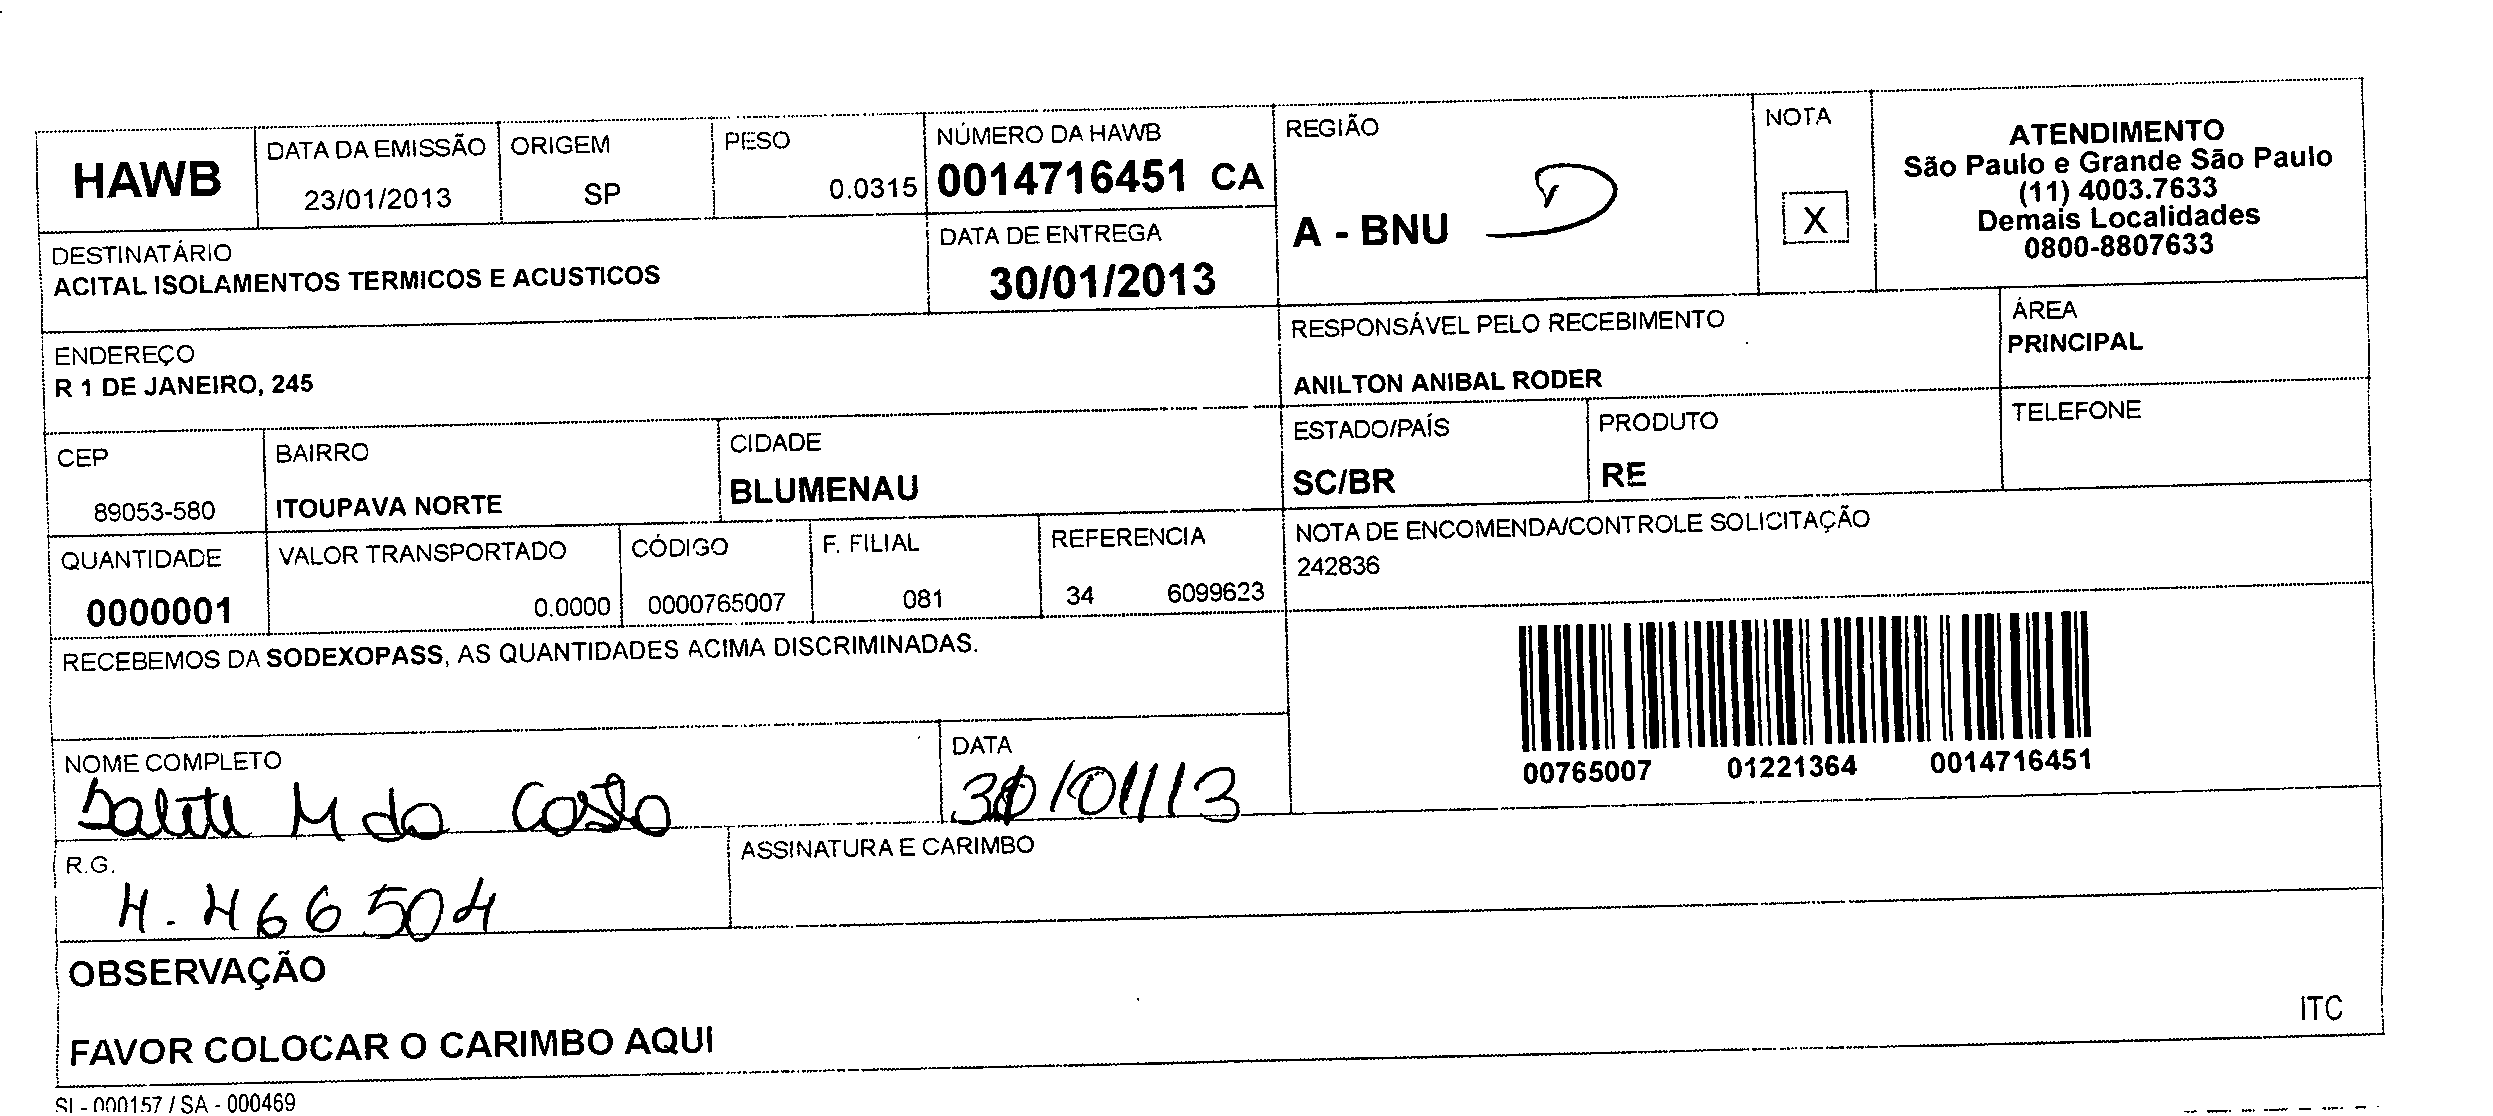 HAWB
DATA DA EMISSÃO
23/01/2013
ORIGEM
SP
PESO
0.0315
NÚMERO DA HAWB
0014716451 CA
REGIÃO
A - BNU
NOTA
X
ATENDIMENTO
São Paulo e Grande São Paulo
(11) 4003.7633
Demais Localidades
0800-8807633
DESTINATÁRIO
ACITAL ISOLAMENTOS TERMICOS E ACUSTICOS
DATA DE ENTREGA
30/01/2013
ENDEREÇO
R 1 DE JANEIRO, 245
RESPONSÁVEL PELO RECEBIMENTO
ANILTON ANIBAL RODER
ÁREA
PRINCIPAL
CEP
89053-580
BAIRRO
ITOUPAVA NORTE
CIDADE
BLUMENAU
ESTADO/PAÍS
SC/BR
PRODUTO
RE
TELEFONE
QUANTIDADE
0000001
VALOR TRANSPORTADO
0.0000
CÓDIGO
0000765007
F. FILIAL
081
REFERENCIA
34 6099623
NOTA DE ENCOMENDA/CONTROLE SOLICITAÇÃO
242836
RECEBEMOS DA SODEXOPASS, AS QUANTIDADES ACIMA DISCRIMINADAS.
00765007 01221364 0014716451
NOME COMPLETO
Salete M da Costa
DATA
30/01/13
R.G.
4.466504
ASSINATURA E CARIMBO
OBSERVAÇÃO
FAVOR COLOCAR O CARIMBO AQUI
ITC
SI - 000157 / SA - 000469